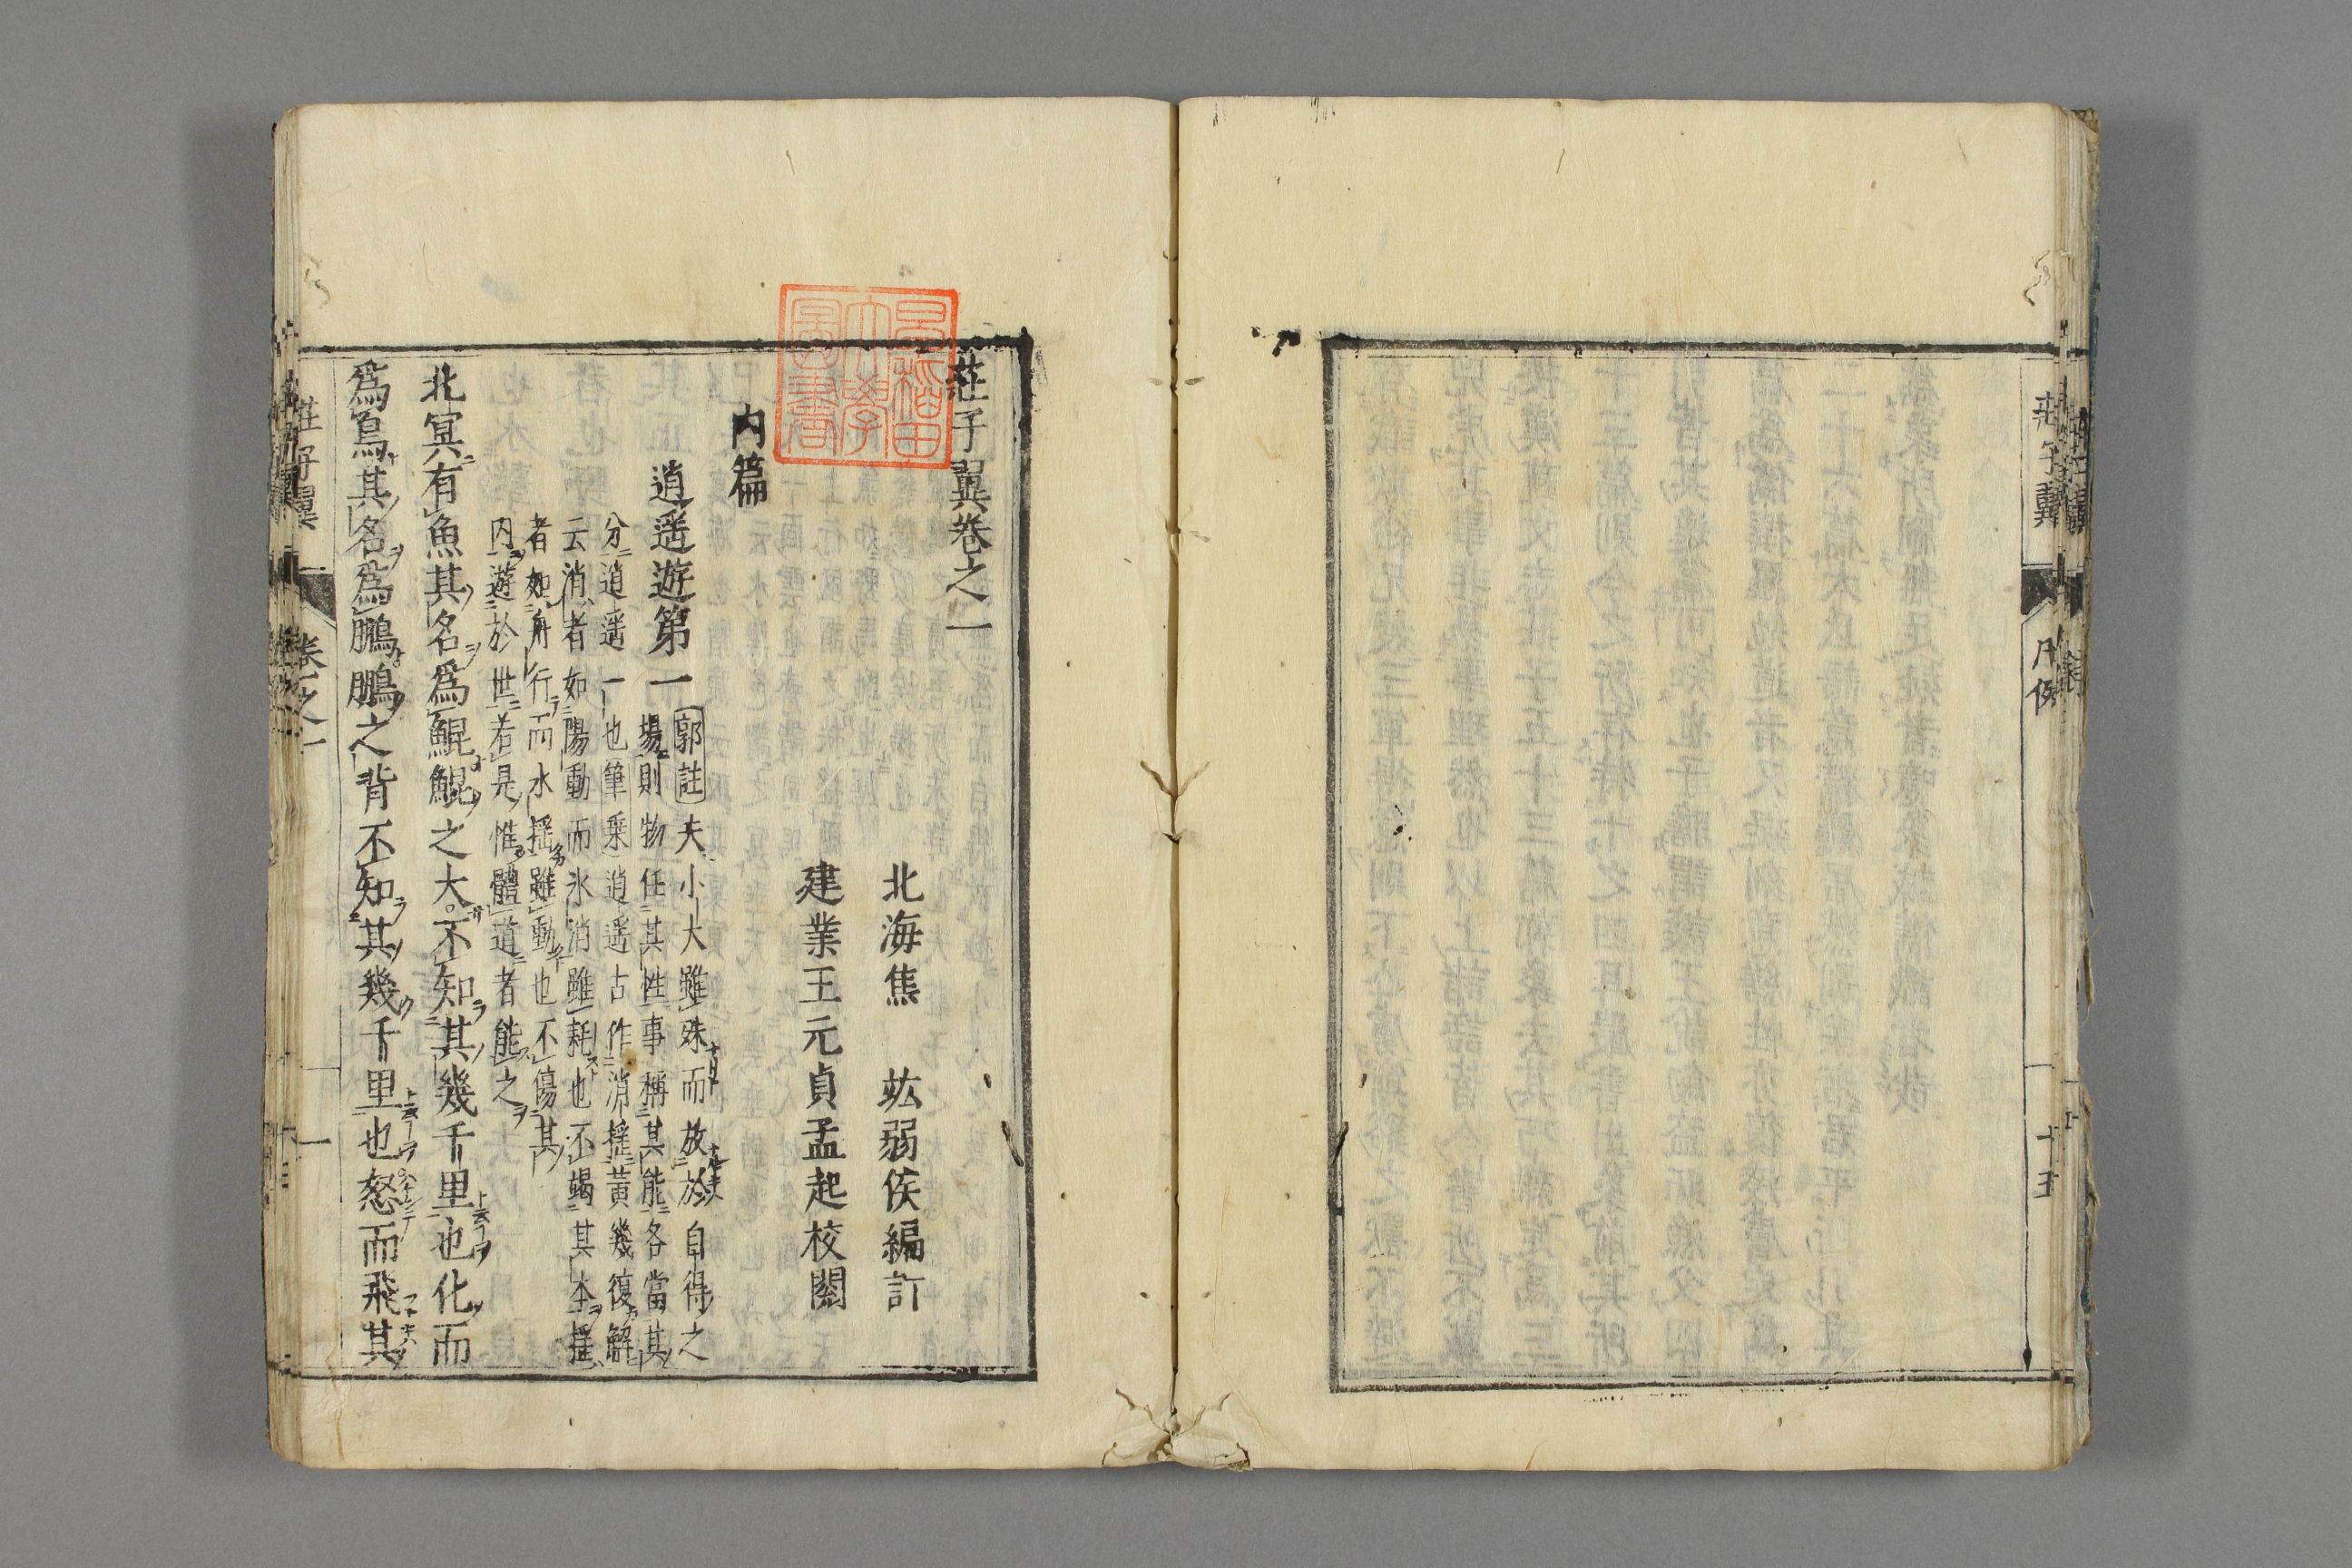 莊子翼卷之一
北海焦　竑弱侯編訂
建業王元貞孟起校閱
內篇
逍遙遊第一
郭註夫小大雖殊而放於自得之
場則物任其性事稱其能各當其
分逍遙一也筆乘逍遙古作消搖黃幾復解
云消者如陽動而氷消雖耗也不竭其本搖
者如舟行而水搖雖動也不傷其
內遊於世若是惟體道者能之
北冥有魚其名爲鯤鯤之大不知其幾千里也化而
爲鳥其名爲鵬鵬之背不知其幾千里也怒而飛其
莊子翼
卷之一
一
莊子翼
凡例
十五
早稲田大學圖書